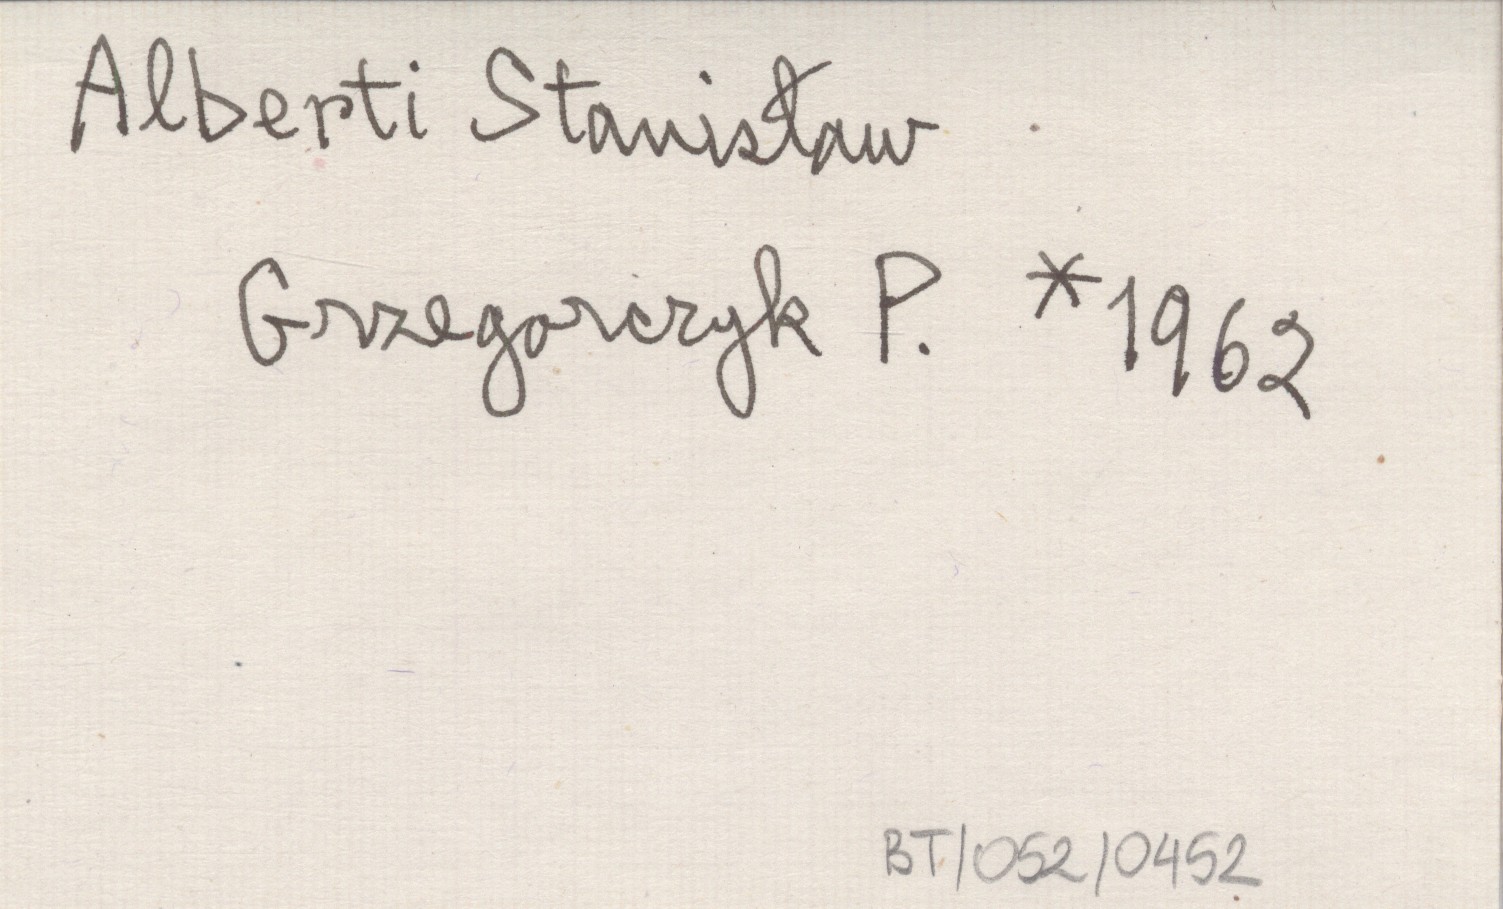 Alberti Stanisław
Grzegorczyk P. *1962
BT/052/0452